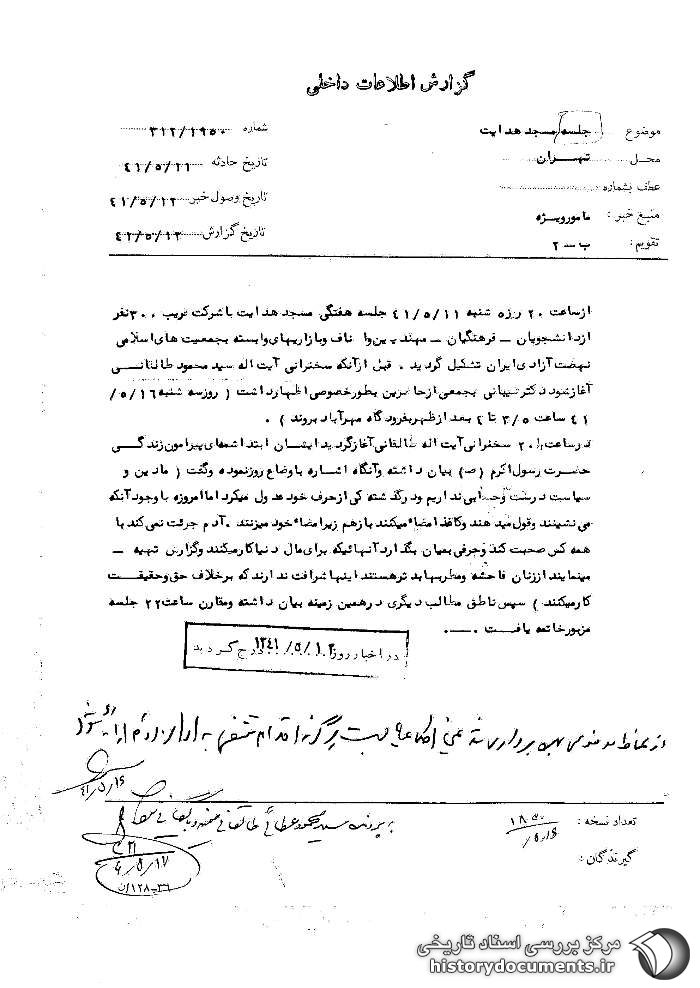 گزارش اطلاعات داخلی
موضوع جلسه مسجد هدایت
شماره ۳۱۲/۱۹۵۰
محل تهران
تاریخ حادثه ۴۱/۵/۱۱
عطف بشماره
تاریخ وصول خبر ۴۱/۵/۱۲
منبع خبر : مامور ویژه
تاریخ گزارش ۴۱/۵/۱۳
تقویم : ب - ۲
از ساعت ۲۰ روزه شنبه ۴۱/۵/۱۱ جلسه هفتگی مسجد هدایت با شرکت قریب ۳۰۰ نفر
از دانشجویان - فرهنگیان - مهندسین و اصناف و بازاریهای وابسته بجمعیت های اسلامی
نهضت آزادی ایران تشکیل گردید . قبل از آنکه سخنرانی آیت اله سید محمود طالقانی
آغاز شود دکتر شیبانی بجمعی از حاضرین بطور خصوصی اظهار داشت ( روز سه شنبه ۱۶/۵/
۴۱ ساعت ۳/۵ تا ۴ بعد از ظهر بفرودگاه مهرآباد بروند ) .
در ساعت ۲۰/۱ سخنرانی آیت اله طالقانی آغاز گردید ایشان ابتدا شمه‌ای پیرامون زندگی
حضرت رسول اکرم (ص) بیان داشته و آنگاه اشاره باوضاع روز نموده و گفت ( ما دین و
سیاست درست و حسابی نداریم در گذشته کی از حرف خود عدول میکرد اما امروزه با وجود آنکه
می نشینند و قول میدهند و کاغذ امضاء میکنند باز هم زیر امضاء خود میزنند . آدم جرئت نمی کند با
همه کس صحبت کند و حرفی بمیان بگذارد آنهائیکه برای مال دنیا کار میکنند و گزارش تهیه -
مینمایند از زنان فاحشه و مطربها بدتر هستند اینها شرافت ندارند که برخلاف حق و حقیقت
کار میکنند ) سپس ناطق مطالب دیگری در همین زمینه بیان داشته و مقارن ساعت ۲۲ جلسه
مزبور خاتمه یافت .
در اخبار روز ۱۳۴۱/۵/۱۴ درج گردید
۴۱/۵/۱۶
تعداد نسخه :
به پرونده سید محمود طالقانی
گیرندگان :
۴۱/۵/۱۷
مرکز بررسی اسناد تاریخی
historydocuments.ir